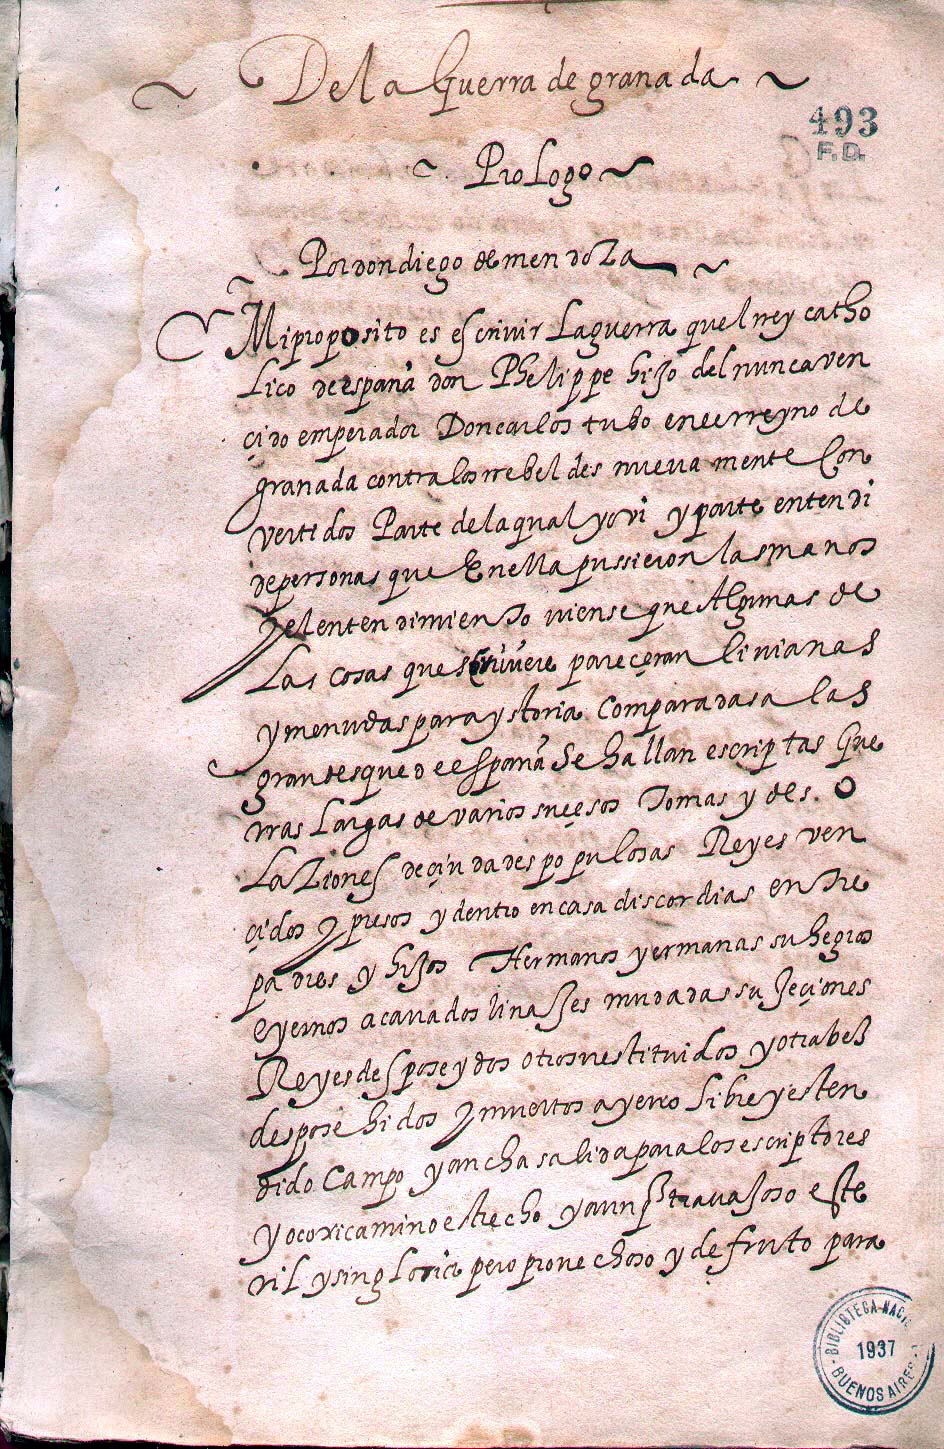 De la Guerra de granada
493
F.D.
Prologo
Por don diego de mendoza
Mi proposito es escrivir La guerra quel rey catho
Lico de españa don Phelippe hijo del nunca ven
çido emperador Don carlos tubo en el rreyno de
granada contra los rrebeldes nueva mente Con
vertidos Parte de la qual yo vi y parte entendi
de personas que En ella pussieron las manos
y el entendimiento viense que Algunas de
Las cosas que scrivere pareçeran livianas
y menudas para ystoria Comparadas a las
grandes que de españa Se hallan escriptas Gue
rras Largas de varios suçesos Tomas y des. o
LaZiones de çiudades populosas Reyes ven
çidos y presos y dentro en casa discordias entre
padres y hijos Hermanos y ermanas suhegros
e yernos acavados linajes mudadas su jeçiones
Reyes desposeydos otros restituidos y otra bez
desposehidos y muertos a yerro Libre y esten
dido Campo y ancha salida para los escriptores
yo cori camino estrecho y aun travajoso este
ril y sin gloria pero provechoso y de fruto para
BIBLIOTECA NACIO
1937
BUENOS AIRES